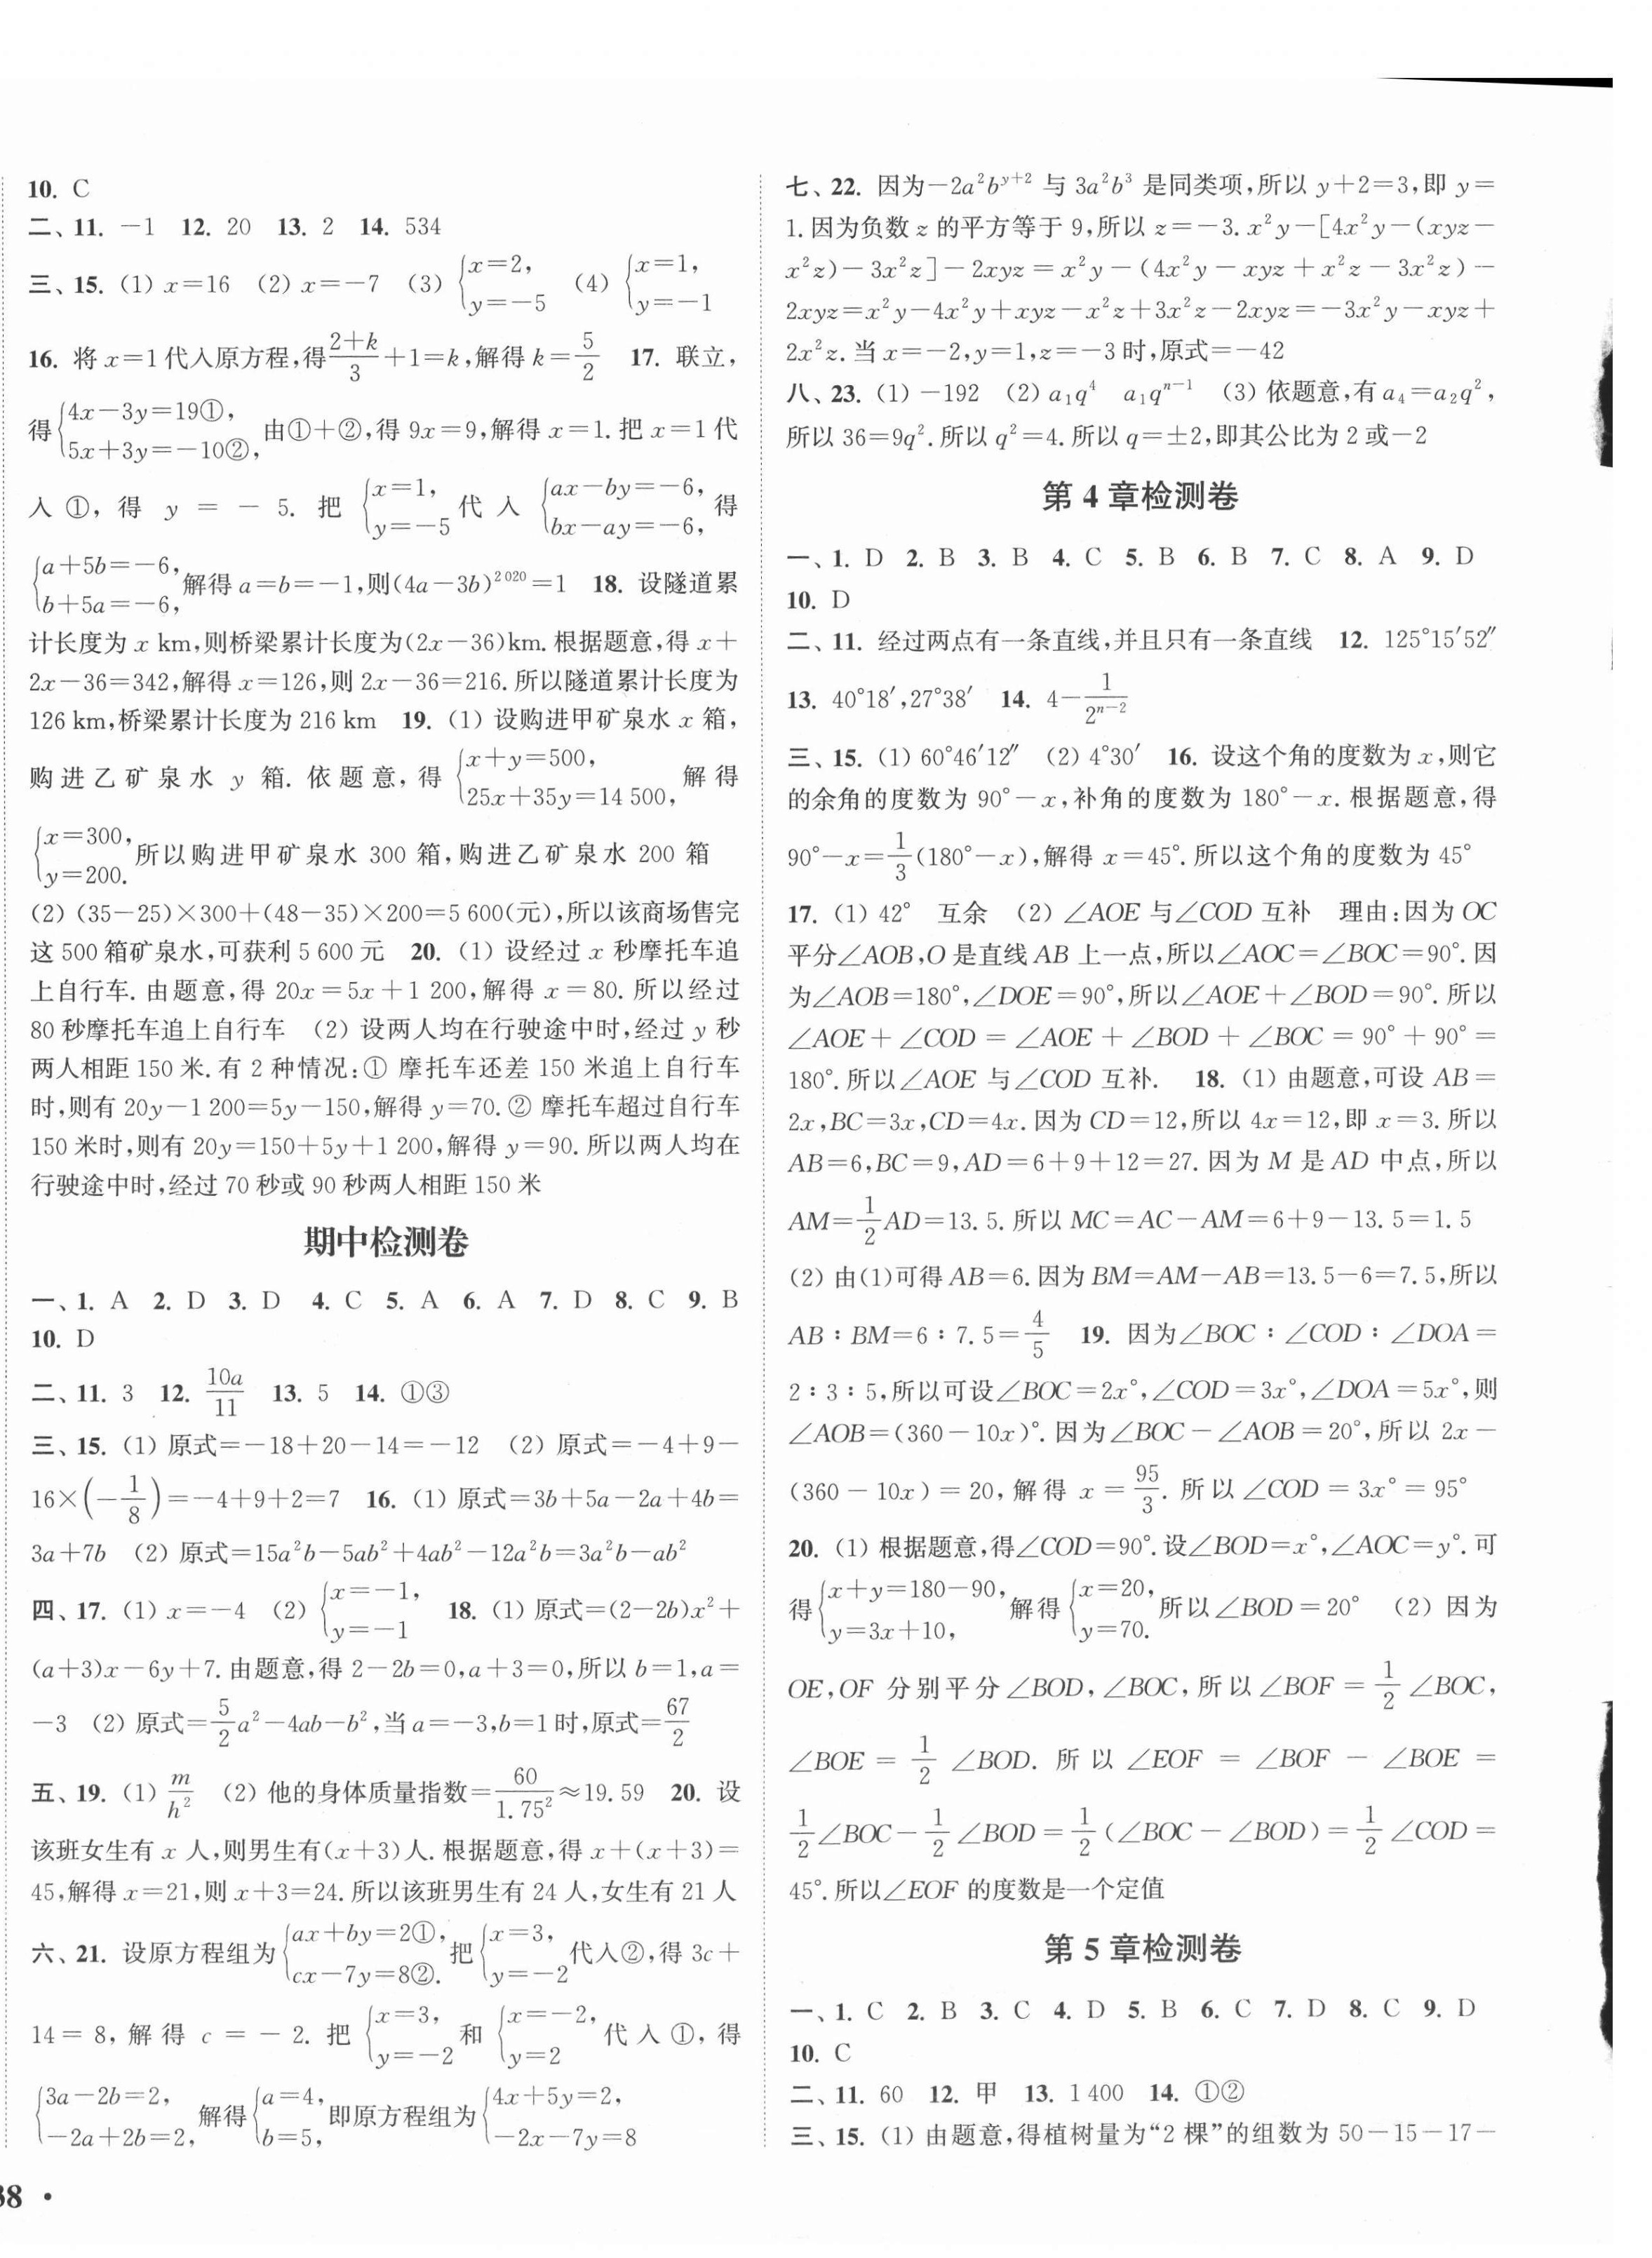 10. C
二、11. －1 12. 20 13. 2 14. 534
三、15. (1) x＝16 (2) x＝－7 (3) {x＝2, y＝－5 (4) {x＝1, y＝－1
16. 将 x＝1代入原方程,得(2＋k)/3＋1＝k,解得 k＝5/2 17. 联立,
得{4x－3y＝19①, 5x＋3y＝－10②, 由①＋②,得 9x＝9,解得 x＝1. 把 x＝1代
入 ①, 得 y ＝ － 5. 把 {x＝1, y＝－5 代 入 {ax－by＝－6, bx－ay＝－6, 得
{a＋5b＝－6, b＋5a＝－6, 解得 a＝b＝－1,则(4a－3b)²⁰²⁰＝1 18. 设隧道累
计长度为 x km,则桥梁累计长度为(2x－36)km. 根据题意,得 x＋
2x－36＝342,解得 x＝126,则 2x－36＝216. 所以隧道累计长度为
126 km,桥梁累计长度为 216 km 19. (1) 设购进甲矿泉水 x 箱,
购进乙矿泉水 y 箱. 依题意,得 {x＋y＝500, 25x＋35y＝14 500, 解得
{x＝300, y＝200. 所以购进甲矿泉水 300 箱,购进乙矿泉水 200 箱
(2) (35－25)×300＋(48－35)×200＝5 600(元),所以该商场售完
这 500 箱矿泉水,可获利 5 600 元 20. (1) 设经过 x 秒摩托车追
上自行车. 由题意,得 20x＝5x＋1 200,解得 x＝80. 所以经过
80 秒摩托车追上自行车 (2) 设两人均在行驶途中时,经过 y 秒
两人相距 150 米. 有 2 种情况:① 摩托车还差 150 米追上自行车
时,则有 20y－1 200＝5y－150,解得 y＝70. ② 摩托车超过自行车
150 米时,则有 20y＝150＋5y＋1 200,解得 y＝90. 所以两人均在
行驶途中时,经过 70 秒或 90 秒两人相距 150 米
期中检测卷
一、1. A 2. D 3. D 4. C 5. A 6. A 7. D 8. C 9. B
10. D
二、11. 3 12. 10a/11 13. 5 14. ①③
三、15. (1) 原式＝－18＋20－14＝－12 (2) 原式＝－4＋9－
16×(－1/8)＝－4＋9＋2＝7 16. (1) 原式＝3b＋5a－2a＋4b＝
3a＋7b (2) 原式＝15a²b－5ab²＋4ab²－12a²b＝3a²b－ab²
四、17. (1) x＝－4 (2) {x＝－1, y＝－1 18. (1) 原式＝(2－2b)x²＋
(a＋3)x－6y＋7. 由题意,得 2－2b＝0,a＋3＝0,所以 b＝1,a＝
－3 (2) 原式＝5/2a²－4ab－b²,当 a＝－3,b＝1 时,原式＝67/2
五、19. (1) m/h² (2) 他的身体质量指数＝60/1.75²≈19.59 20. 设
该班女生有 x 人,则男生有(x＋3)人. 根据题意,得 x＋(x＋3)＝
45,解得 x＝21,则 x＋3＝24. 所以该班男生有 24 人,女生有 21 人
六、21. 设原方程组为{ax＋by＝2①, cx－7y＝8②. 把{x＝3, y＝－2代入②,得 3c＋
14＝ 8, 解 得 c ＝ － 2. 把 {x＝3, y＝－2 和 {x＝－2, y＝2 代 入 ①, 得
{3a－2b＝2, －2a＋2b＝2, 解得{a＝4, b＝5, 即原方程组为{4x＋5y＝2, －2x－7y＝8
38 •
七、22. 因为－2a²bʸ⁺² 与 3a²b³ 是同类项,所以 y＋2＝3,即 y＝
1. 因为负数 z 的平方等于 9,所以 z＝－3. x²y－[4x²y－(xyz－
x²z)－3x²z]－2xyz＝x²y－(4x²y－xyz＋x²z－3x²z)－
2xyz＝x²y－4x²y＋xyz－x²z＋3x²z－2xyz＝－3x²y－xyz＋
2x²z. 当 x＝－2,y＝1,z＝－3 时,原式＝－42
八、23. (1) －192 (2) a₁q⁴ a₁qⁿ⁻¹ (3) 依题意,有 a₄＝a₂q²,
所以 36＝9q². 所以 q²＝4. 所以 q＝±2,即其公比为 2 或－2
第 4 章检测卷
一、1. D 2. B 3. B 4. C 5. B 6. B 7. C 8. A 9. D
10. D
二、11. 经过两点有一条直线,并且只有一条直线 12. 125°15′52″
13. 40°18′,27°38′ 14. 4－1/2ⁿ⁻²
三、15. (1) 60°46′12″ (2) 4°30′ 16. 设这个角的度数为 x,则它
的余角的度数为 90°－x,补角的度数为 180°－x. 根据题意,得
90°－x＝1/3(180°－x),解得 x＝45°. 所以这个角的度数为 45°
17. (1) 42° 互余 (2) ∠AOE 与∠COD 互补 理由:因为 OC
平分∠AOB,O 是直线 AB 上一点,所以∠AOC＝∠BOC＝90°. 因
为∠AOB＝180°,∠DOE＝90°,所以∠AOE＋∠BOD＝90°. 所以
∠AOE＋∠COD＝∠AOE＋∠BOD＋∠BOC＝90°＋90°＝
180°. 所以∠AOE 与∠COD 互补. 18. (1) 由题意,可设 AB＝
2x,BC＝3x,CD＝4x. 因为 CD＝12,所以 4x＝12,即 x＝3. 所以
AB＝6,BC＝9,AD＝6＋9＋12＝27. 因为 M 是 AD 中点,所以
AM＝1/2AD＝13.5. 所以 MC＝AC－AM＝6＋9－13.5＝1.5
(2) 由(1)可得 AB＝6. 因为 BM＝AM－AB＝13.5－6＝7.5,所以
AB∶BM＝6∶7.5＝4/5 19. 因为∠BOC∶∠COD∶∠DOA＝
2∶3∶5,所以可设∠BOC＝2x°,∠COD＝3x°,∠DOA＝5x°,则
∠AOB＝(360－10x)°. 因为∠BOC－∠AOB＝20°,所以 2x－
(360－10x)＝20,解得 x＝95/3. 所以∠COD＝3x°＝95°
20. (1) 根据题意,得∠COD＝90°. 设∠BOD＝x°,∠AOC＝y°. 可
得{x＋y＝180－90, y＝3x＋10, 解得{x＝20, y＝70. 所以∠BOD＝20° (2) 因为
OE,OF 分别平分∠BOD,∠BOC,所以∠BOF＝1/2∠BOC,
∠BOE＝1/2∠BOD. 所以∠EOF＝∠BOF－∠BOE＝
1/2∠BOC－1/2∠BOD＝1/2(∠BOC－∠BOD)＝1/2∠COD＝
45°. 所以∠EOF 的度数是一个定值
第 5 章检测卷
一、1. C 2. B 3. C 4. D 5. B 6. C 7. D 8. C 9. D
10. C
二、11. 60 12. 甲 13. 1 400 14. ①②
三、15. (1) 由题意,得植树量为“2 棵”的组数为 50－15－17－